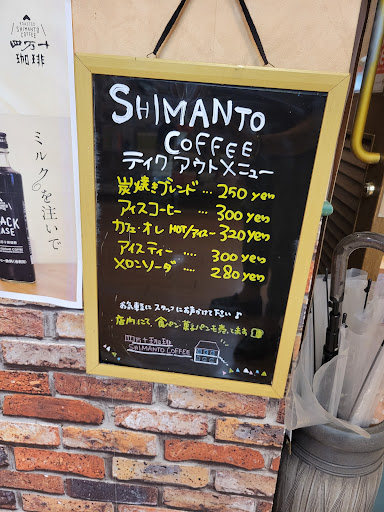 ROASTED
SHIMANTO
COFFEE
四万十
珈琲
ミルクを注いで
ACK
ASE
SHIMANTO
COFFEE
テイクアウトメニュー
炭焼きブレンド … 250yen
アイスコーヒー … 300yen
カフェ・オレ HOT/アイス… 320yen
アイスティー …. 300yen
メロンソーダ … 280yen
お気軽にスタッフにお声かけて下さい♪
店内にて、食パン・菓子パンも売ってます
四万十珈琲
SHIMANTO COFFEE